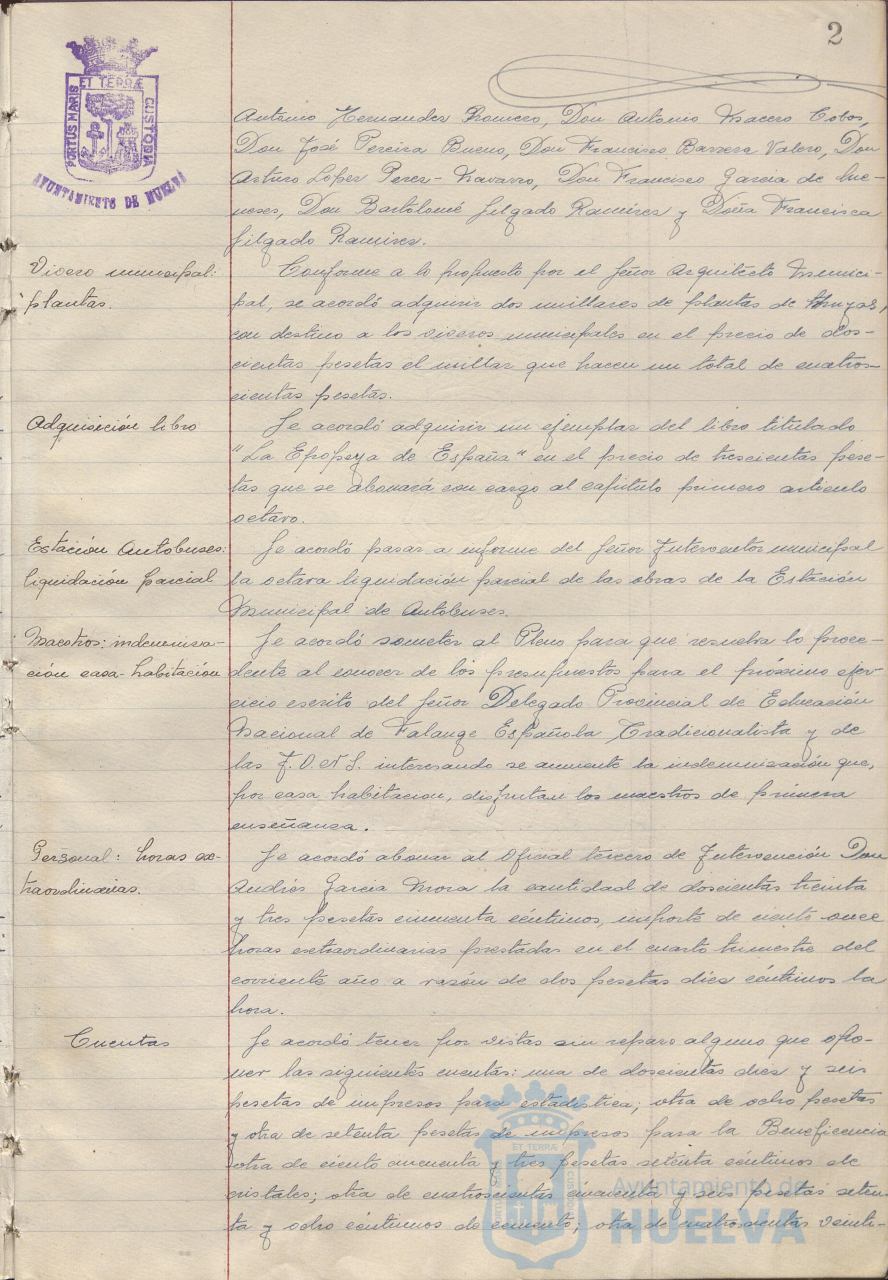 2
PORTUS MARIS ET TERRÆ CUSTODIA
AYUNTAMIENTO DE HUELVA
Antonio Hernandez Romero, Don Antonio Macero Cobos,
Don José Pereira Bueno, Don Francisco Barrera Valero, Don
Arturo López Perez-Navarro, Don Francisco Garcia de
neses, Don Bartolomé Jilgado Ramirez y Doña Francisca
Jilgado Ramirez.
Vivero municipal:
plantas.
Conforme a lo propuesto por el Señor Arquitecto Munici-
pal, se acordó adquirir dos millares de plantas de thuyas,
con destino a los viveros municipales en el precio de dos-
cientas pesetas el millar que hacen un total de cuatros-
cientas pesetas.
Adquisición libro
Se acordó adquirir un ejemplar del libro titulado
"La Epopeya de España" en el precio de trescientas pese-
tas que se abonará con cargo al capitulo primero articulo
octavo.
Estación Autobuses:
liquidación parcial
Se acordó pasar a informe del Señor Interventor municipal
la octava liquidación parcial de las obras de la Estación
Municipal de Autobuses.
Maestros: indemniza-
ción casa-habitación
Se acordó someter al Pleno para que resuelva lo proce-
dente al conocer de los presupuestos para el próximo ejer-
cicio escrito del Señor Delegado Provincial de Educación
Nacional de Falange Española Tradicionalista y de
las J.O.N.S. interesando se aumente la indemnización que,
por casa habitacion, disfrutan los maestros de primera
enseñanza.
Personal: horas ex-
traordinarias.
Se acordó abonar al Oficial tercero de Intervención Don
Andrés Garcia Mora la cantidad de doscientas treinta
y tres pesetas cincuenta céntimos, importe de ciento once
horas extraordinarias prestadas en el cuarto trimestre del
corriente año a razón de dos pesetas diez céntimos la
hora.
Cuentas
Se acordó tener por vistas sin reparo alguno que opo-
ner las siguientes cuentas: una de doscientas diez y seis
pesetas de impresos para estadistica; otra de ocho pesetas
y otra de setenta pesetas de impresos para la Beneficencia
otra de ciento cincuenta y tres pesetas setenta céntimos de
cristales; otra de cuatroscientas cincuenta y seis pesetas seten-
ta y ocho céntimos de cemento; otra de cuatroscientas veinti-
ET TERRÆ
Ayuntamiento de
HUELVA